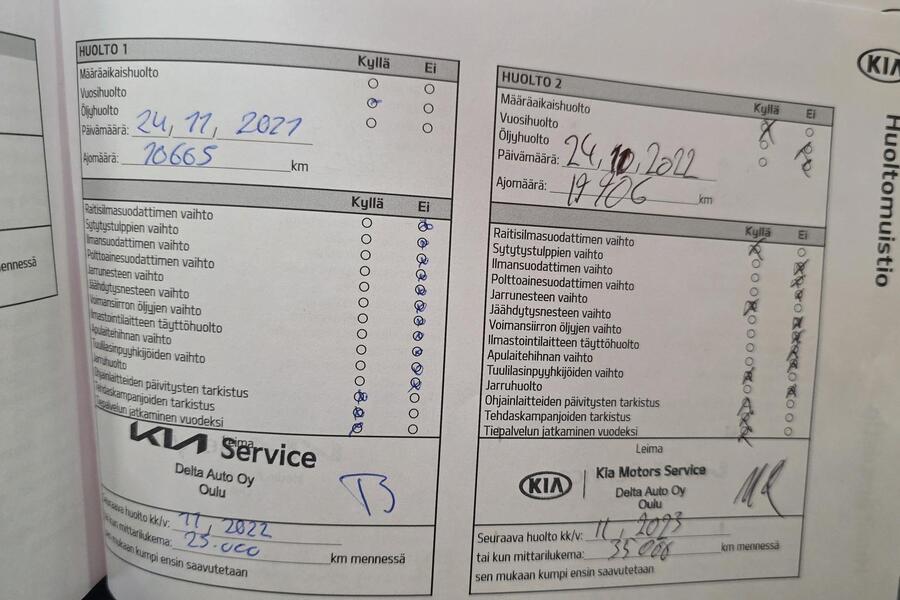 HUOLTO 1
Kyllä Ei
Määräaikaishuolto
Vuosihuolto
Öljyhuolto
Päivämäärä: 24, 11, 2021
Ajomäärä: 10665 km
Kyllä Ei
Raitisilmasuodattimen vaihto
Sytytystulppien vaihto
Ilmansuodattimen vaihto
Polttoainesuodattimen vaihto
Jarrunesteen vaihto
Jäähdytysnesteen vaihto
Voimansiirron öljyjen vaihto
Ilmastointilaitteen täyttöhuolto
Apulaitehihnan vaihto
Tuulilasinpyyhkijöiden vaihto
Jarruhuolto
Ohjainlaitteiden päivitysten tarkistus
Tehdaskampanjoiden tarkistus
Tiepalvelun jatkaminen vuodeksi
Leima
KIA Service
Delta Auto Oy
Oulu
Seuraava huolto kk/v: 11, 2022
tai kun mittarilukema: 25.000 km mennessä
sen mukaan kumpi ensin saavutetaan
HUOLTO 2
Kyllä Ei
Määräaikaishuolto
Vuosihuolto
Öljyhuolto
Päivämäärä: 24, 10, 2022
Ajomäärä: 19406 km
Kyllä Ei
Raitisilmasuodattimen vaihto
Sytytystulppien vaihto
Ilmansuodattimen vaihto
Polttoainesuodattimen vaihto
Jarrunesteen vaihto
Jäähdytysnesteen vaihto
Voimansiirron öljyjen vaihto
Ilmastointilaitteen täyttöhuolto
Apulaitehihnan vaihto
Tuulilasinpyyhkijöiden vaihto
Jarruhuolto
Ohjainlaitteiden päivitysten tarkistus
Tehdaskampanjoiden tarkistus
Tiepalvelun jatkaminen vuodeksi
Leima
KIA Kia Motors Service
Delta Auto Oy
Oulu
Seuraava huolto kk/v: 11, 2023
tai kun mittarilukema: 35 000 km mennessä
sen mukaan kumpi ensin saavutetaan
KIA
Huoltomuistio
mennessä